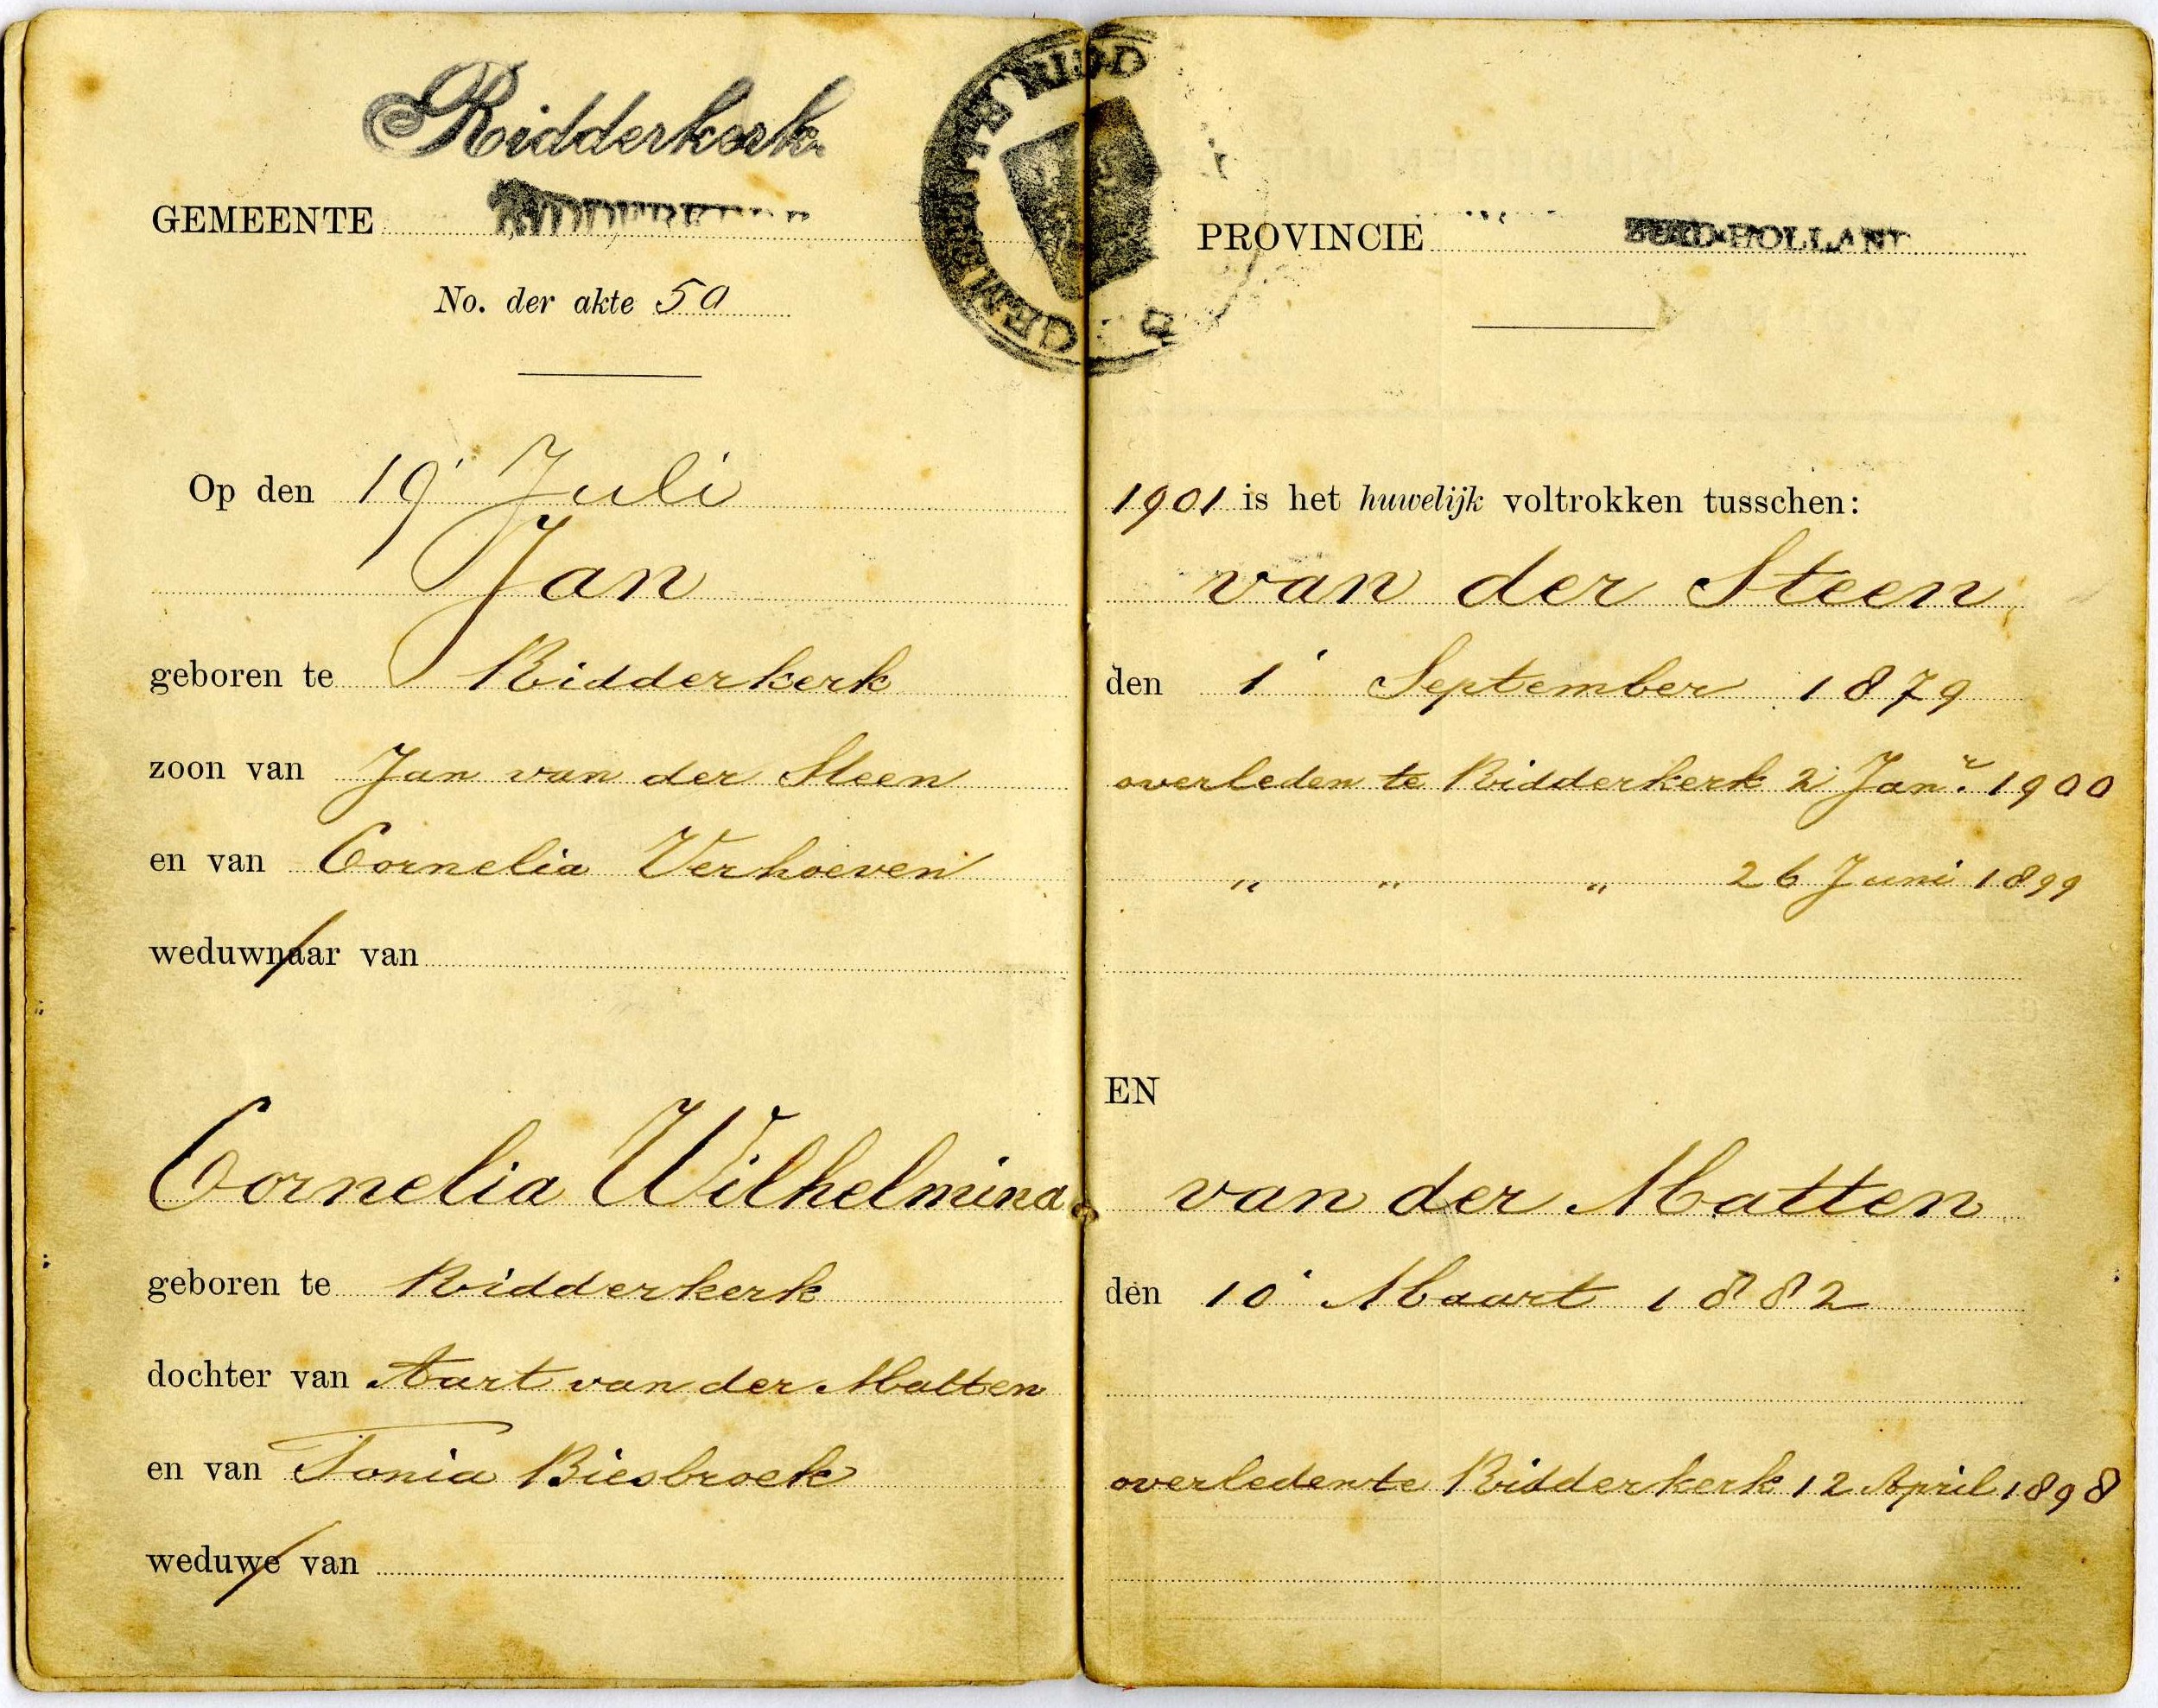 Ridderkerk.
GEMEENTE
No. der akte 50
Op den 19 Juli
Jan
geboren te Ridderkerk
zoon van Jan van der Steen
en van Cornelia Verhoeven
weduwnaar van
Cornelia Wilhelmina
geboren te Ridderkerk
dochter van Aart van der Matten
en van Tonia Biesbroek
weduwe van
GEMEENTE RIDD
PROVINCIE ZUID-HOLLAND
1901 is het huwelijk voltrokken tusschen:
van der Steen
den 1 September 1879
overleden te Ridderkerk 2 Jan.r 1900
" " " 26 Juni 1899
EN
van der Matten
den 10 Maart 1882
overleden te Ridderkerk 12 April 1898